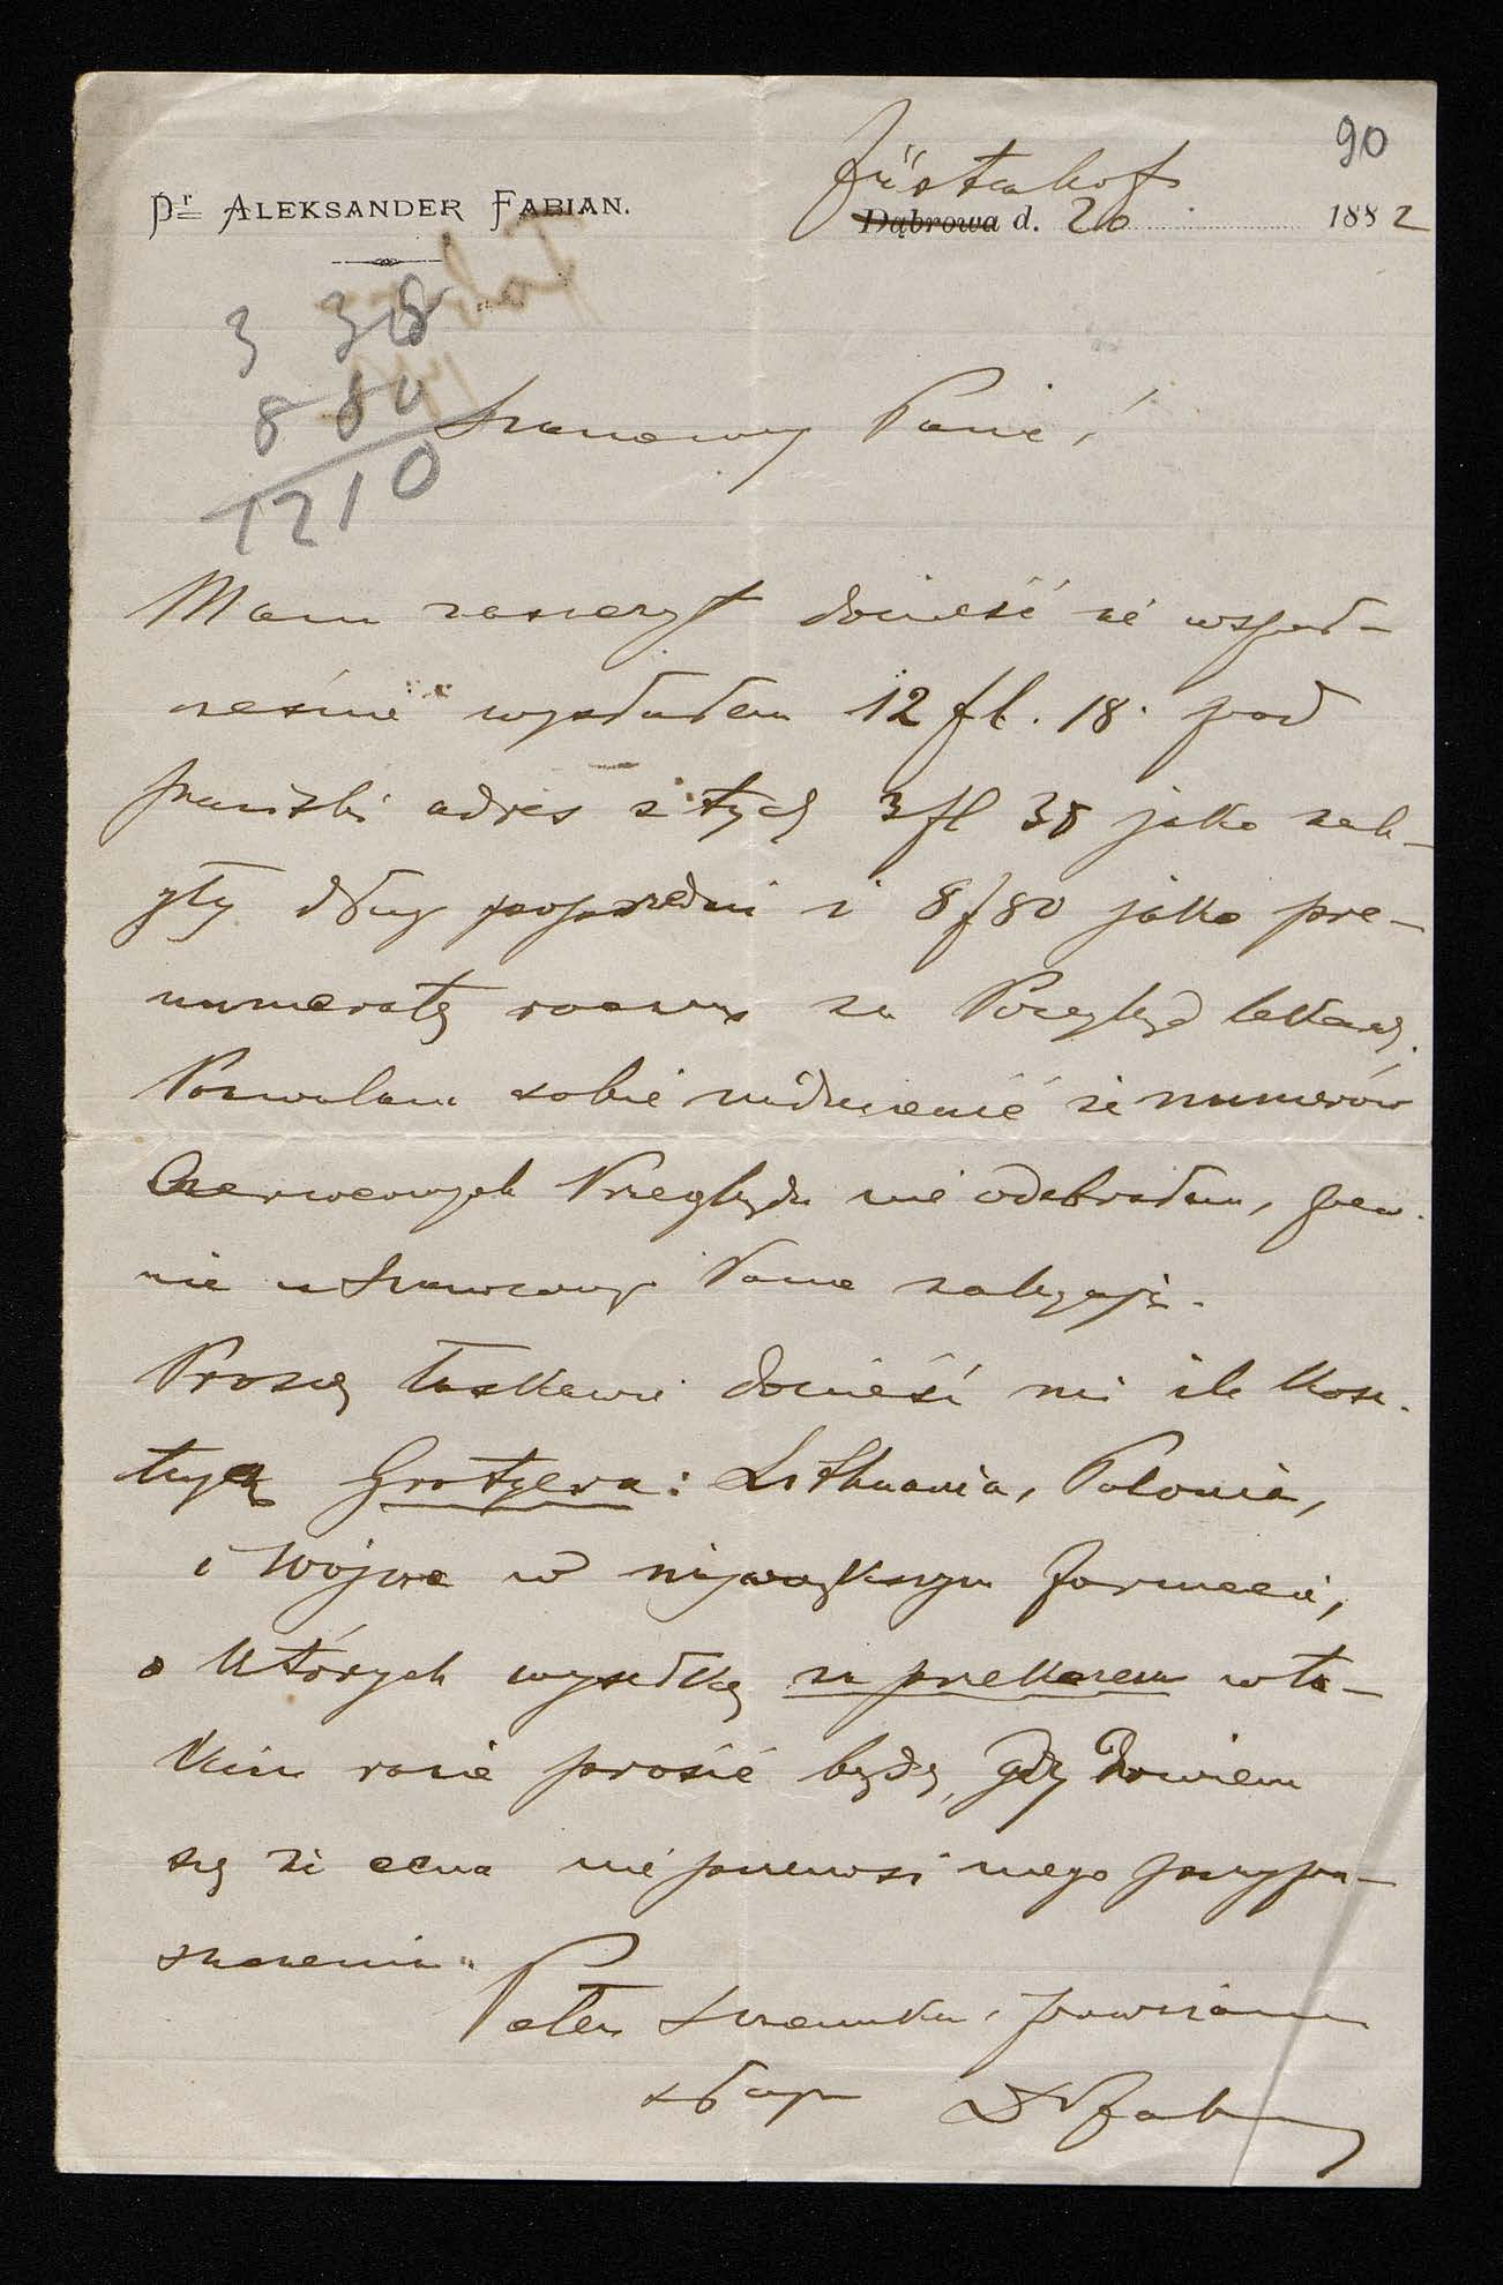 90
Dr ALEKSANDER FABIAN.
Füstenhof
Dąbrowa d. 20 1882
3 38
8 80
1210
Szanowny Panie!
Mam zaszczyt donieść że współ-
cześnie wysłałem 12 fl. 18. pod
pański adres z tych 3 fl 38 jako
dług poprzedni i 8 f 80 jako pre-
numeratę za Przegląd lekars.
Pozwalam sobie nadmienić że numerów
Czerwcowych Przeglądu nie odebrałem, pew-
nie u Szanownego Pana zalegają.
Proszę łaskawie donieść mi ile kosz-
tują Grotgera: Lithuania, Polonia,
i Wojna w największym formacie,
o których wysełkę za przekazem w ta-
kim razie prosić będę, gdy dowiem
się że cena nie przenosi mego przypu-
szczenia.
Pełen szacunku i poważania
sługa Dr Fabian